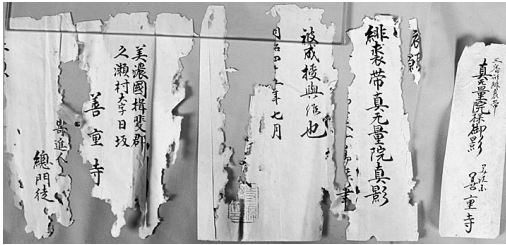 真无量院様御影
善重寺
緋裘帯真无量院真影
被成授與候也
年七月
美濃國揖斐郡
之瀬村大字日坂
善重寺
寄進人
總門徒